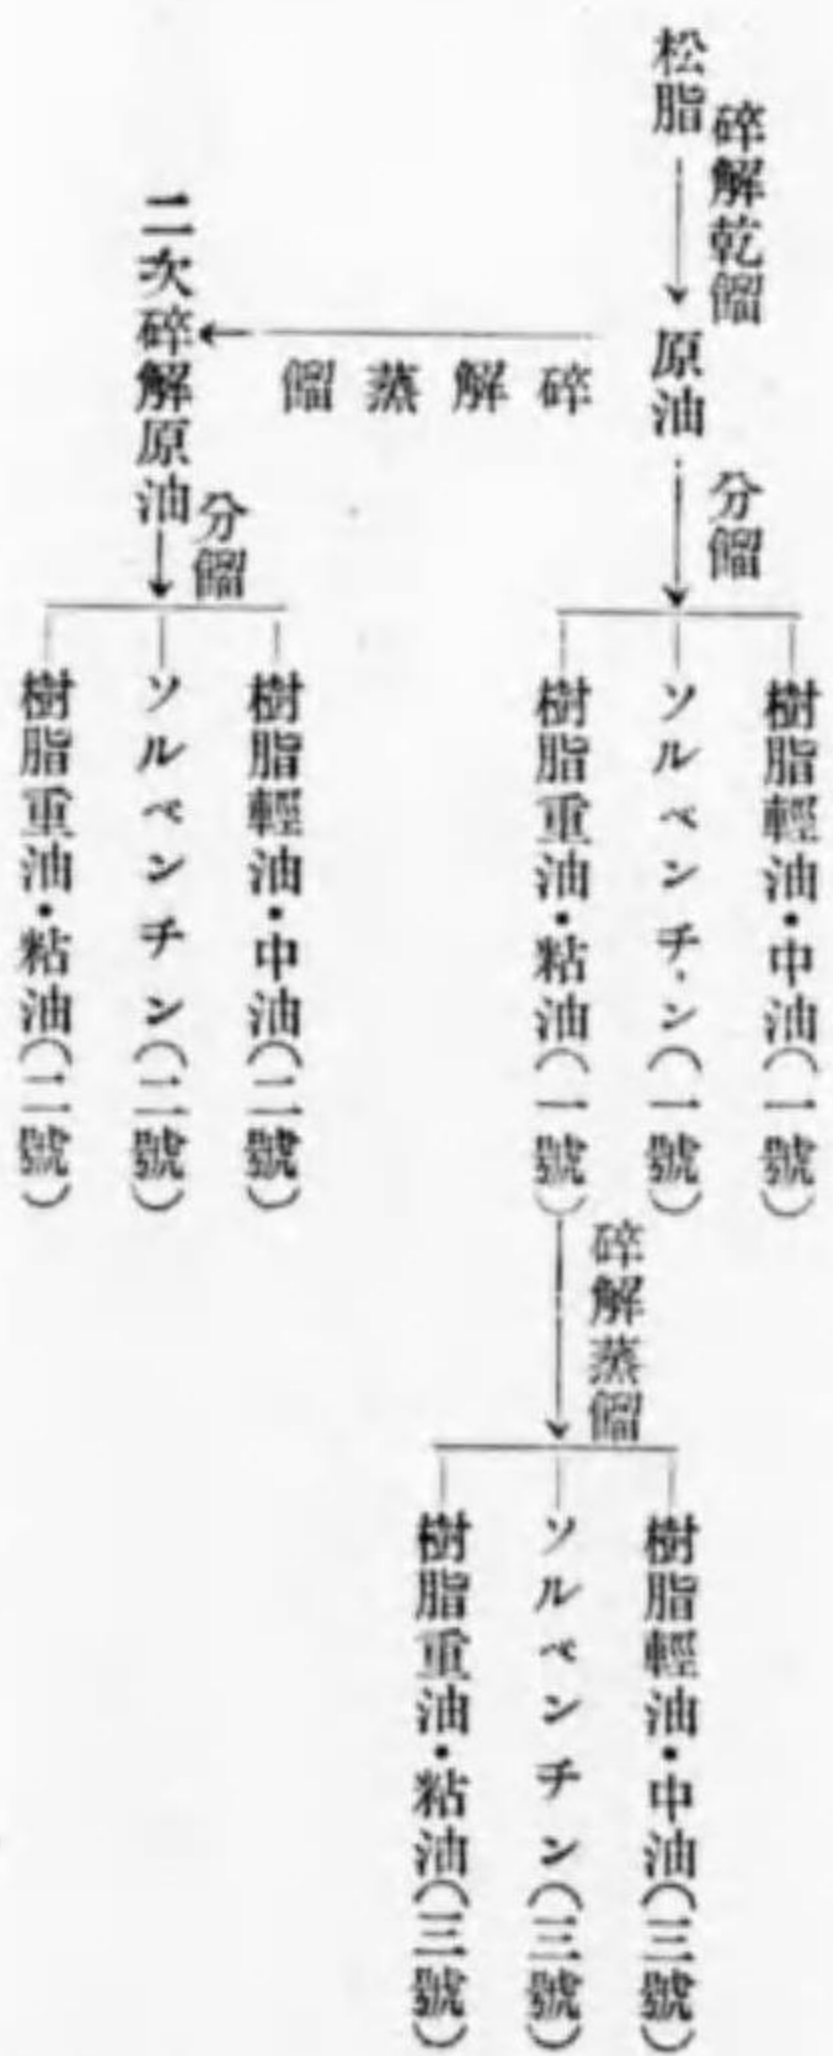 松脂
碎解乾餾
原油
分餾
樹脂輕油・中油(一號)
ソルベンチン(一號)
樹脂重油・粘油(一號)
碎解蒸餾
樹脂輕油・中油(三號)
ソルベンチン(三號)
樹脂重油・粘油(三號)
碎解蒸餾
二次碎解原油
分餾
樹脂輕油・中油(二號)
ソルベンチン(二號)
樹脂重油・粘油(二號)